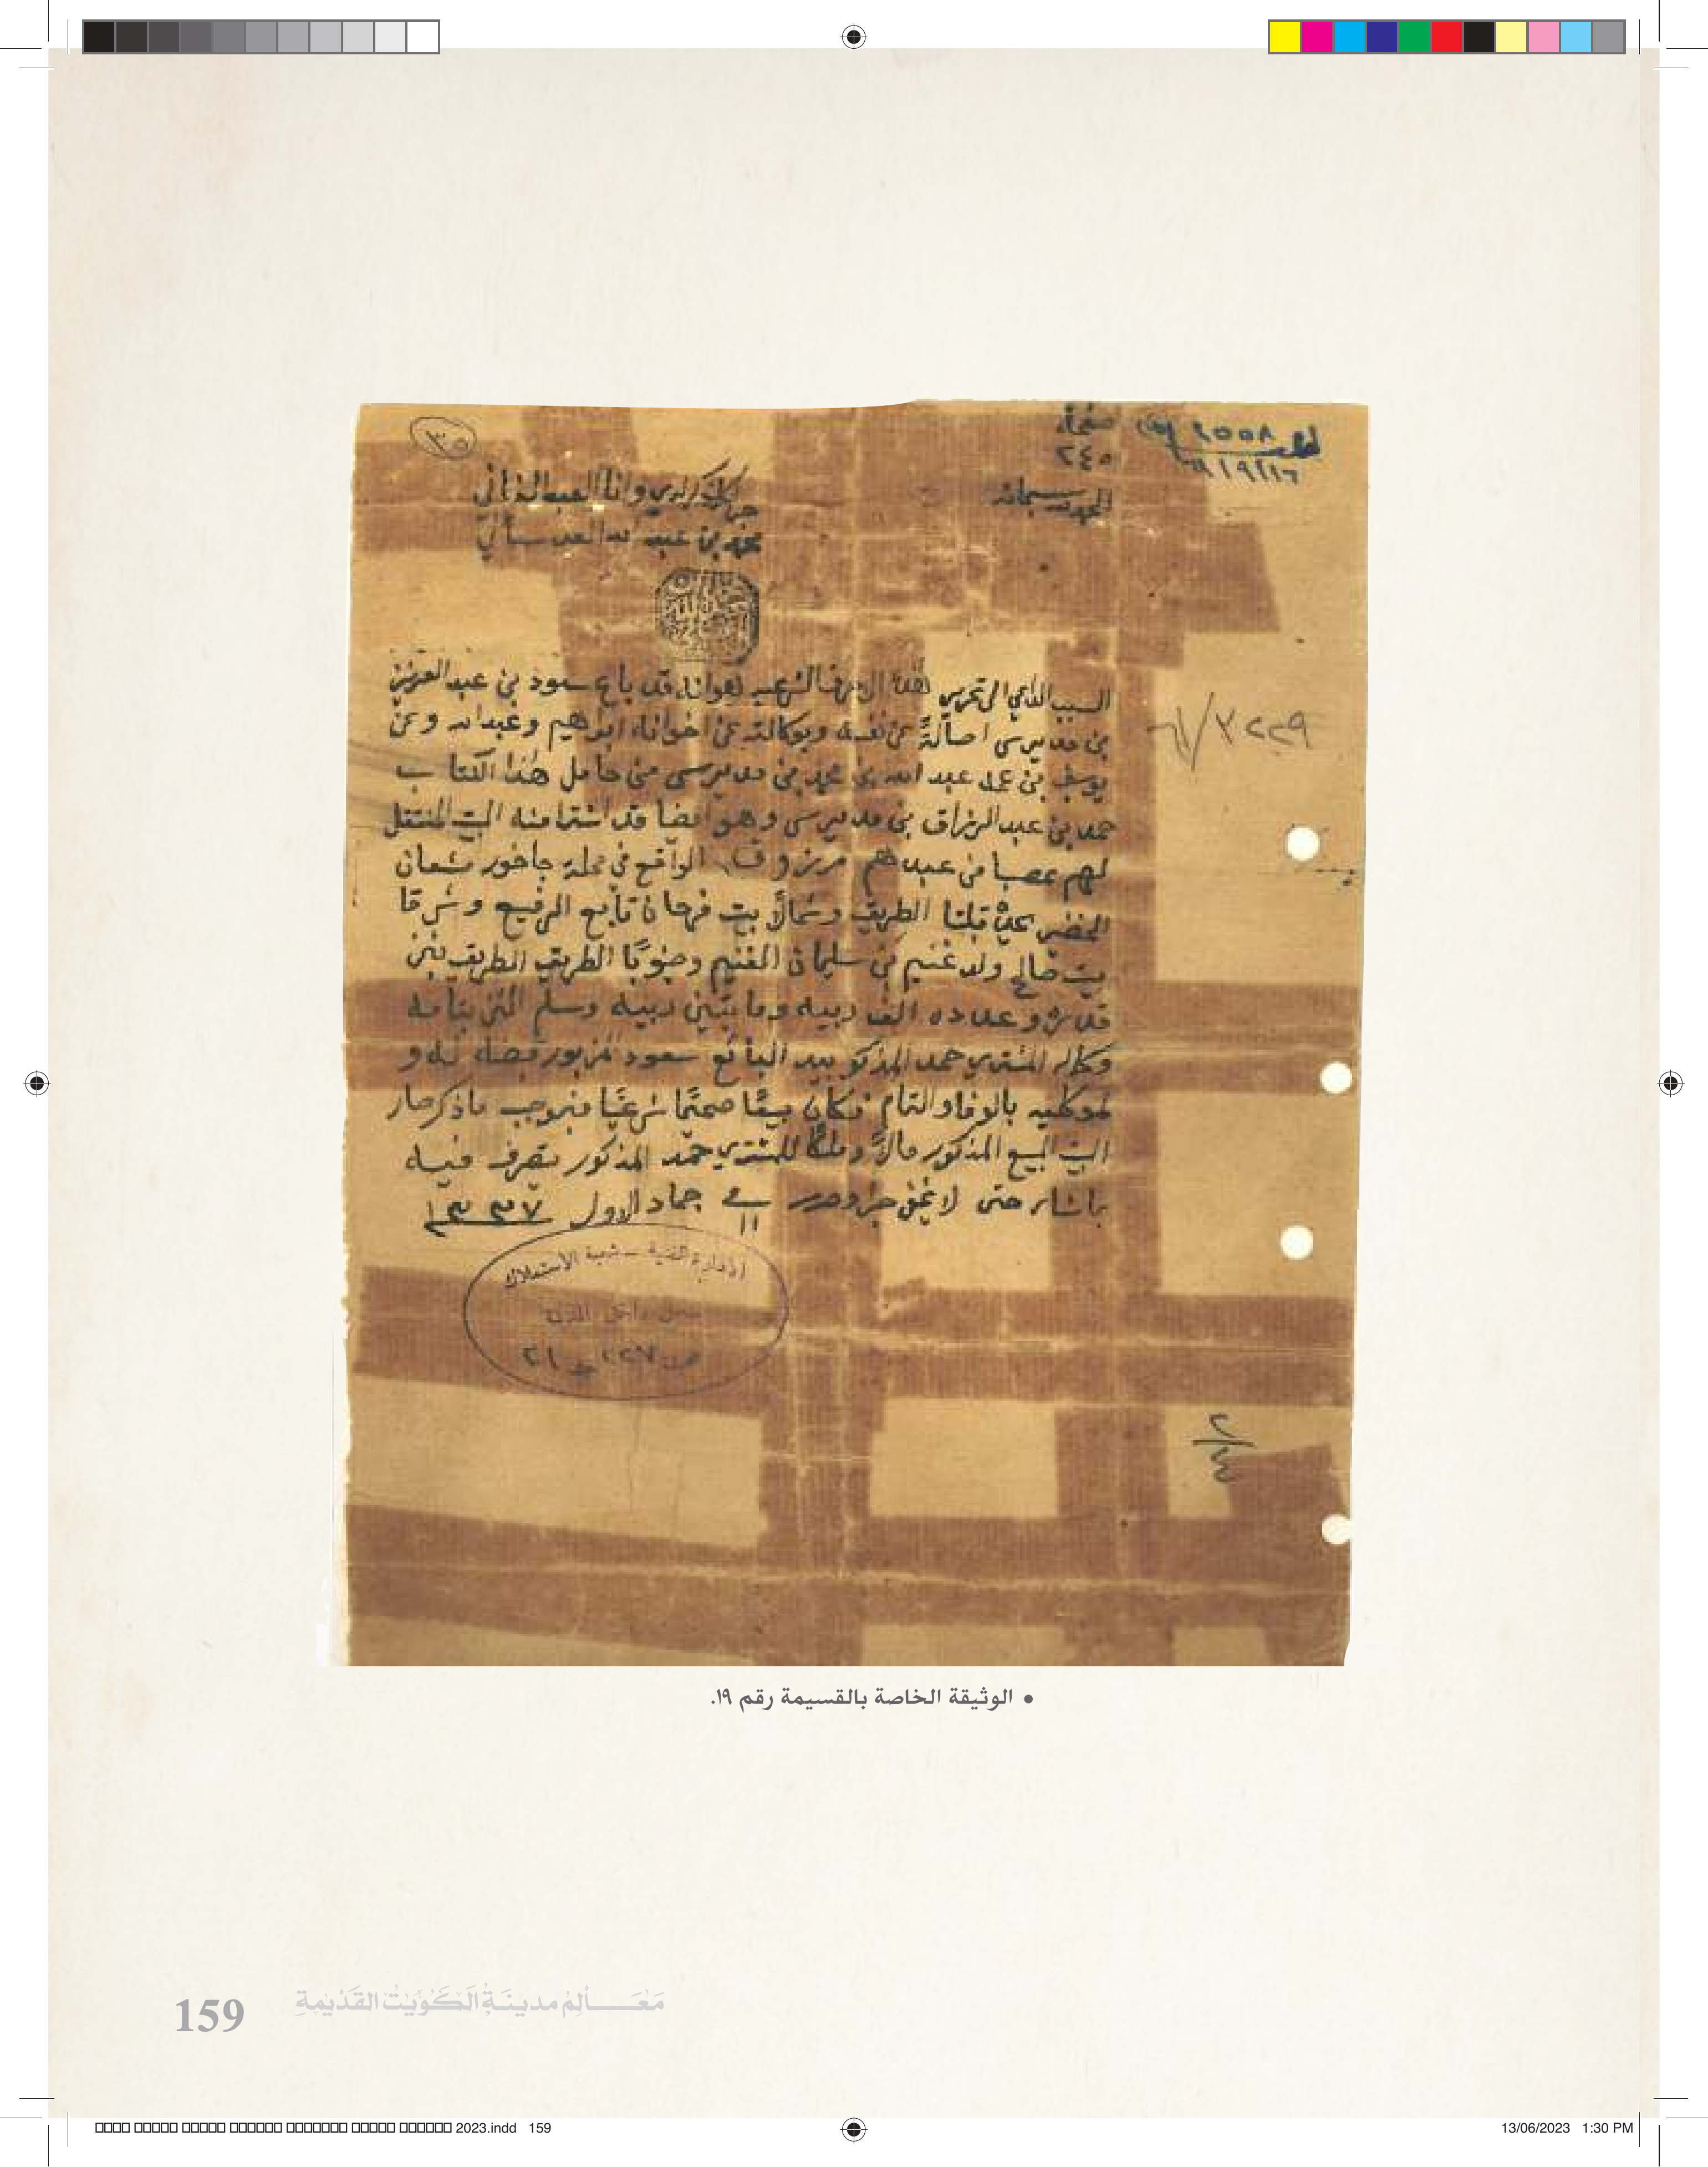 صفحة
٢٤٥
٣٥
الحمد لله سبحانه
جرى ذلك لدي وانا العبد الفاني
محمد بن عبد الله العدساني
السبب الداعي الى تحرير هذه الاحرف الشرعيه هو انه قد باع سعود بن عبد العزيز
بن مديرس اصالةً عن نفسه وبوكالته عن اخوانه ابراهيم وعبد الله وعن
يوسف بن عمه عبد الله بن محمد بن مديرس من حامل هذا الكتاب
حمد بن عبد الرزاق بن مديرس وهو ايضا قد اشترا منه البيت المنتقل
لهم عصبا من عبدهم مرزوق الواقع في محلة جاخور مشعان
الخضير يحده قبلتا الطريق وشمالاً بيت فرحان تابع الرفيع وشرقا
بيت صالح ولد غنيم بن سليمان الغنيم وجنوبًا الطريق الطريق بثمن
قدره وعدده الف ربيه ومايتين ربيه وسلم الثمن بتمامه
وكماله المشتري حمد المذكور بيد البائع سعود المزبور قبضه له و
لموكليه بالوفاء والتمام فكان بيعًا صحيحًا شرعيًا فبموجب ماذكر صار
البيت المبيع المذكور مالاً وملكًا للمشتري حمد المذكور يتصرف فيه
بماشاء حتى لا يخفى جرا وحرر في ١١ جماد الاول ١٣٣٧
الادارة الفنية - شعبة الاستملاك
سجل داخل المدينة
• الوثيقة الخاصة بالقسيمة رقم ١٩.
159 مَعَالِمُ مدينَةِ الكُوَيْت القَدْيمَةِ
2023.indd 159 13/06/2023 1:30 PM